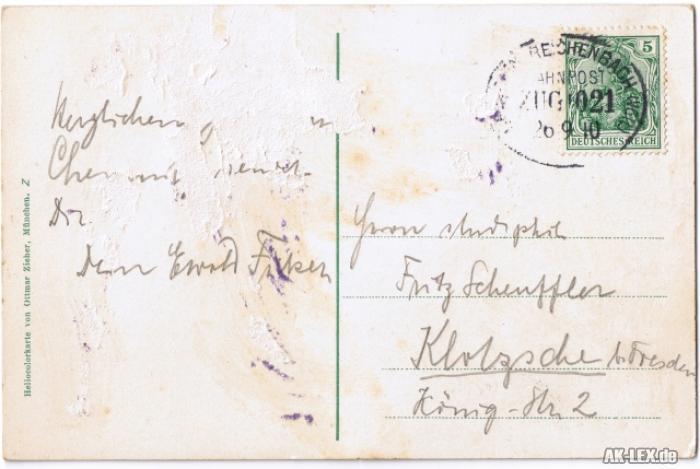 Herzlichen
Chemnitz
Dir
Dein Ewald
Heliocolorkarte von Ottmar Zieher, München. Z
REICHENBACH
BAHNPOST
ZUG 1021
26 9 10
5
DEUTSCHES REICH
Herrn stud phil
Fritz Scheuffler
Klotzsche b. Dresden
König-Str. 2
AK-LEX.de